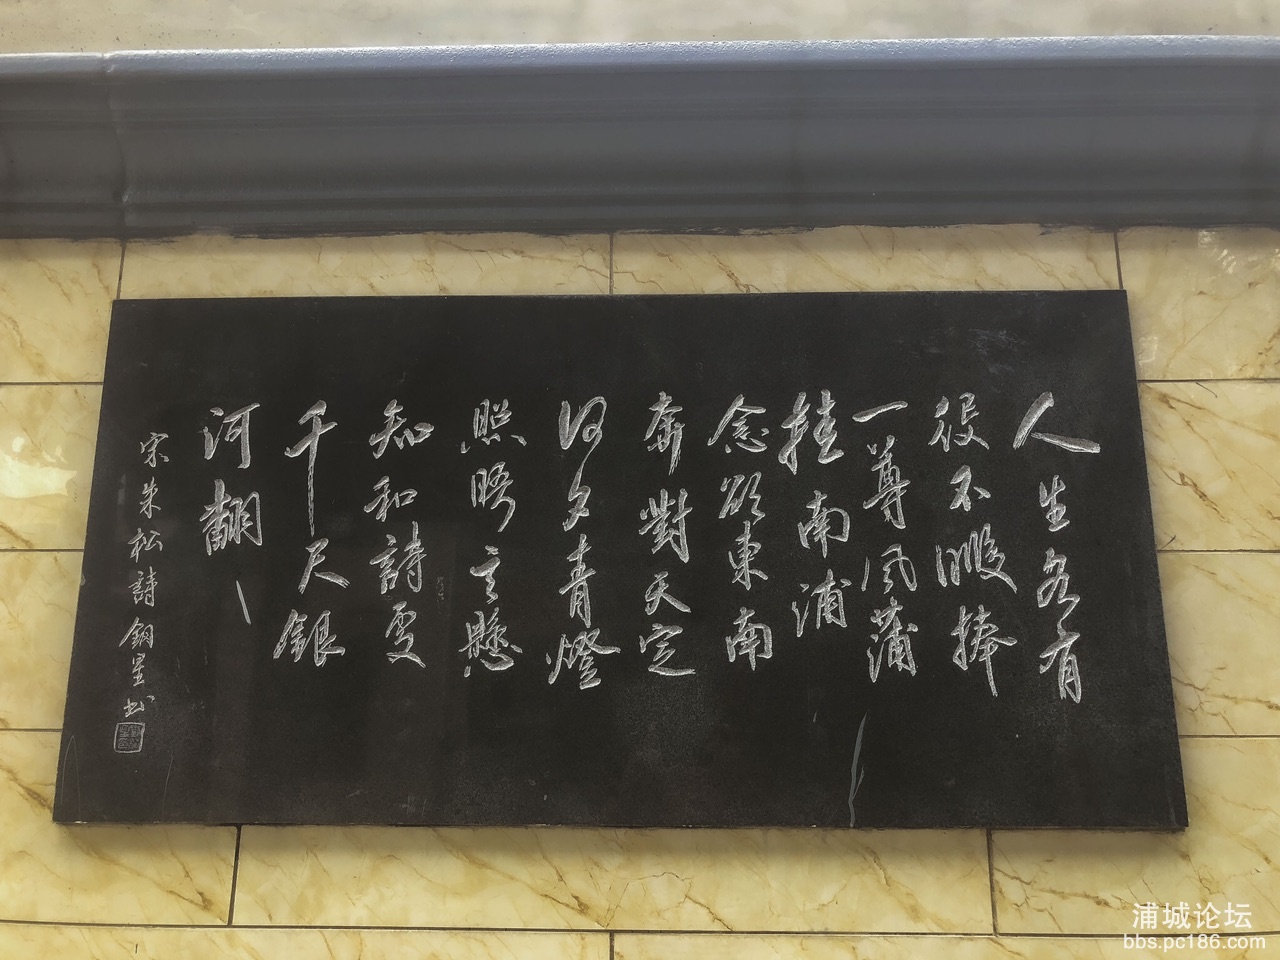 人生各有
役不暇捧
一尊風蒲
挂南浦
念欲東南
奔對天定
何夕青燈
照晤言懸
知和詩罢
千尺銀
河翻
宋朱松詩 鋼星书
浦城论坛
bbs.pc186.com